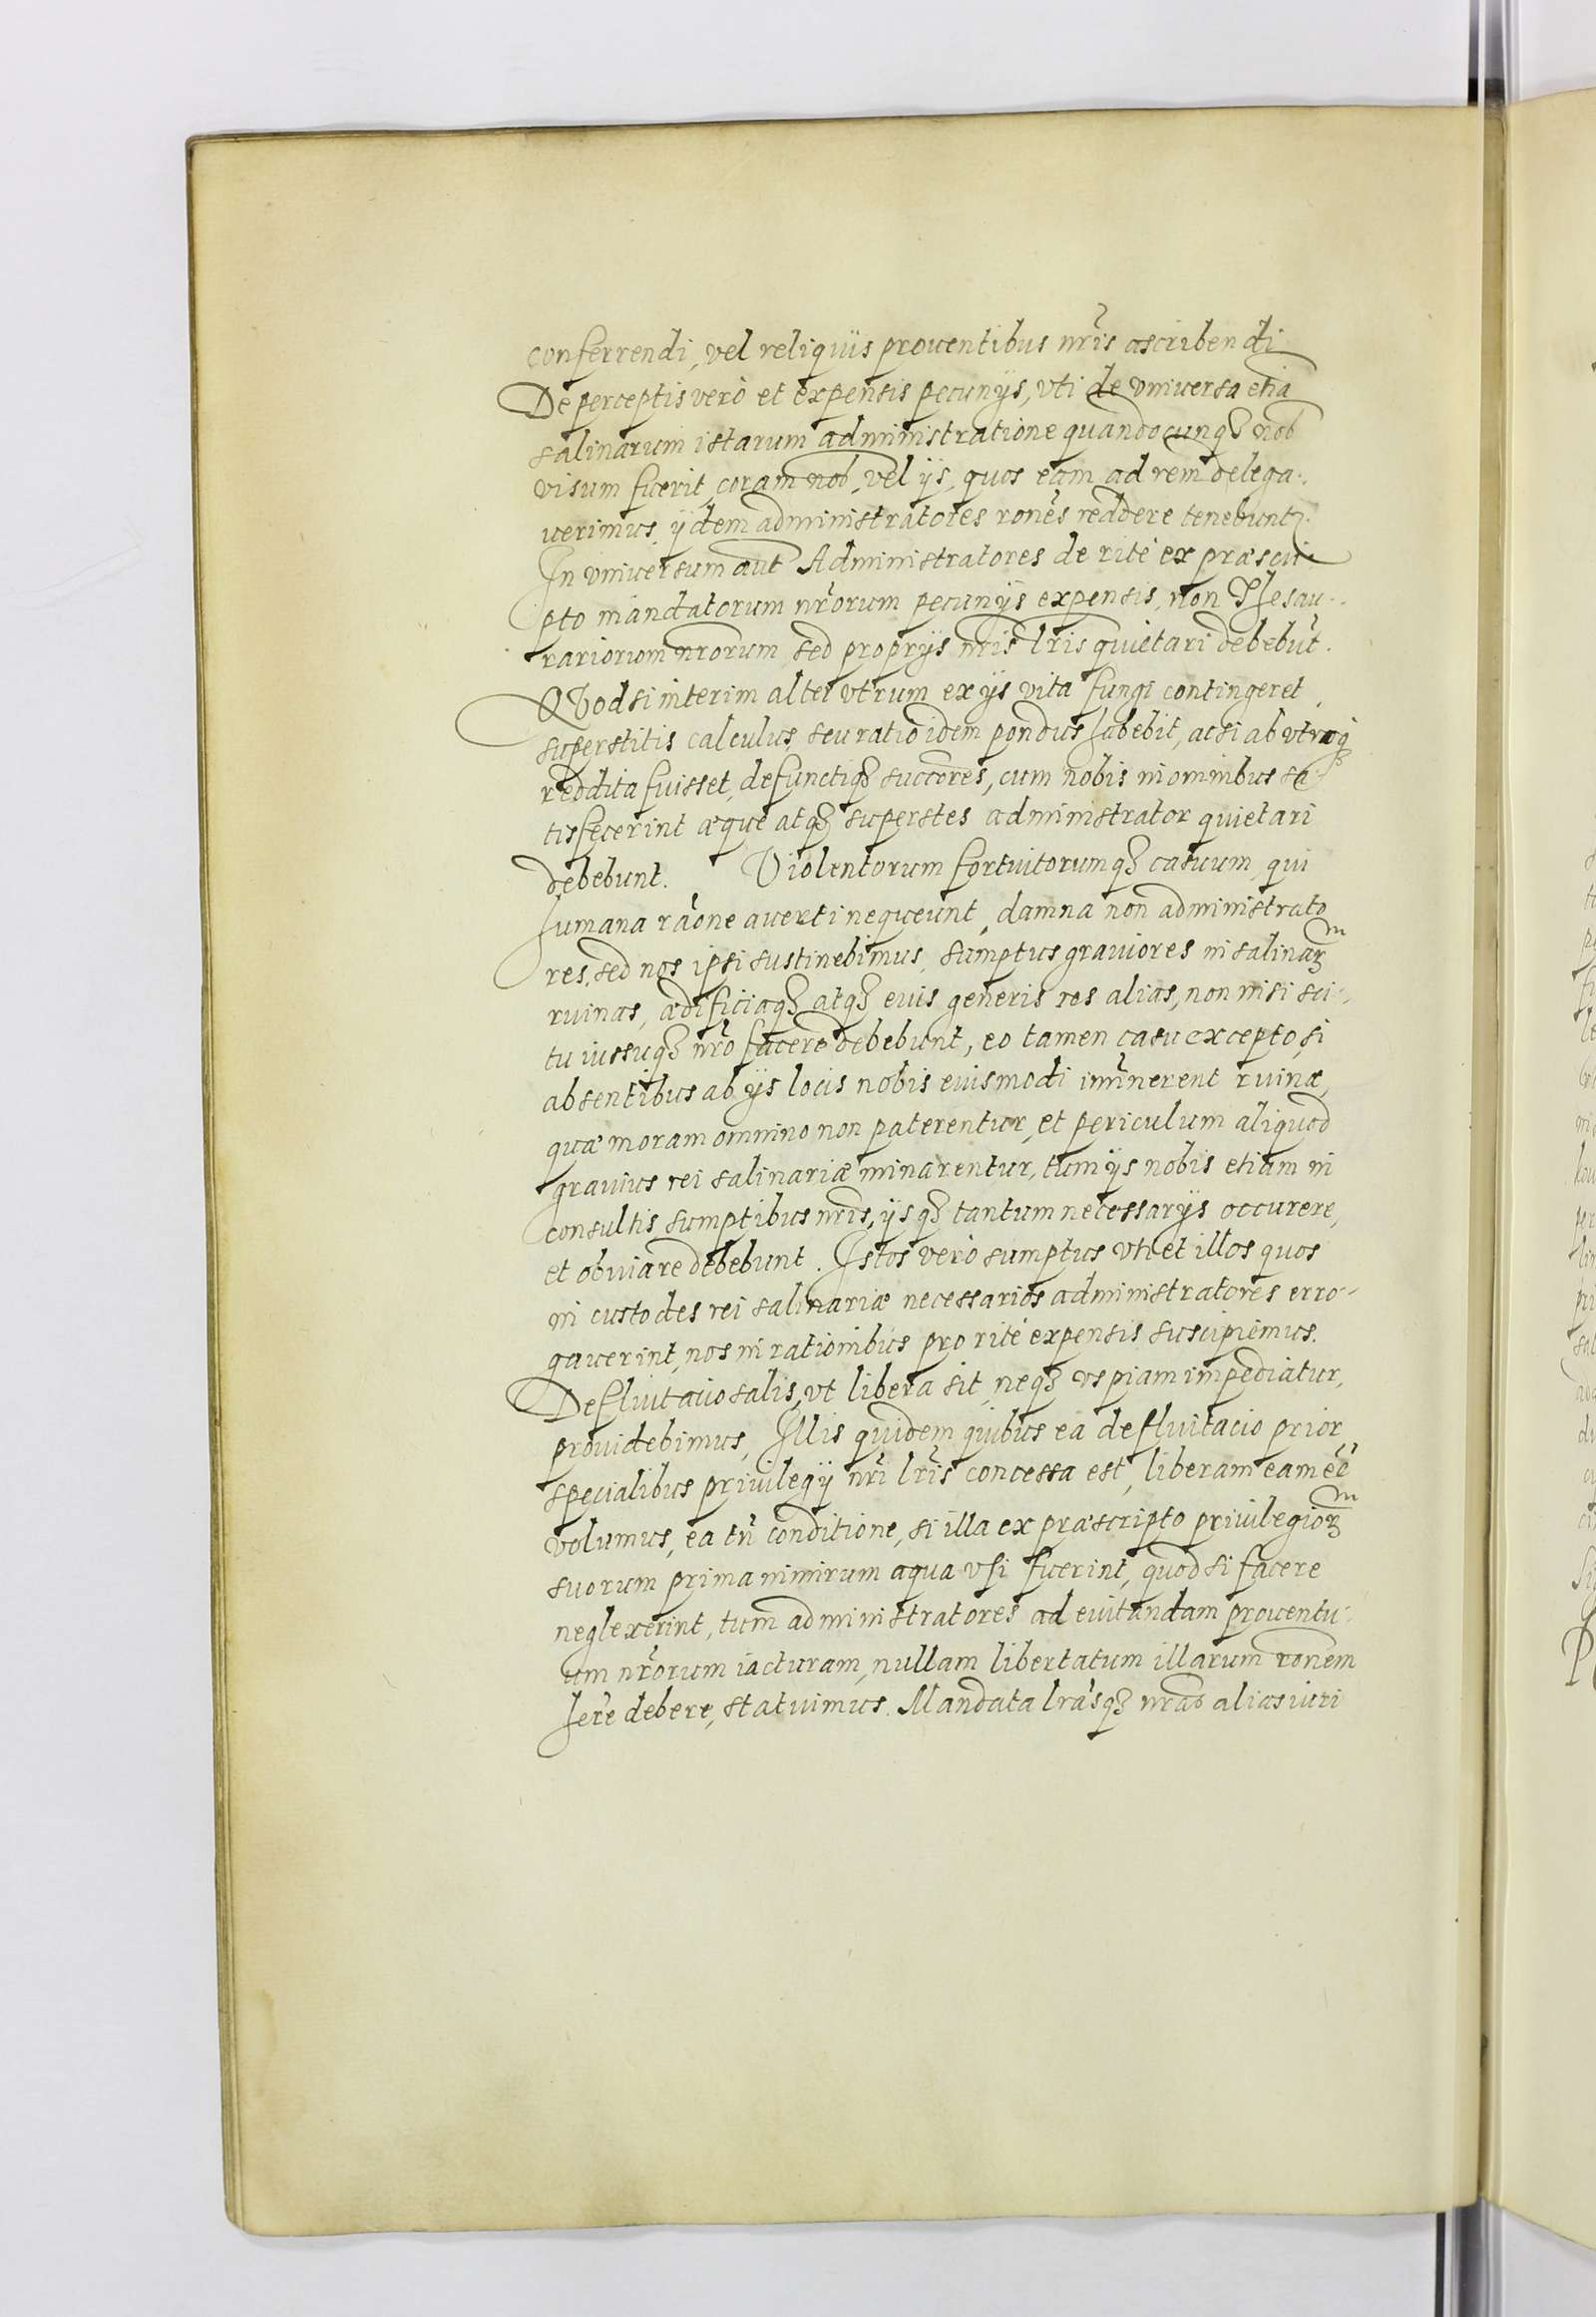 conferrendi, vel reliquis prouentibus nr̃is ascribendi
De perceptis verò et expensis pecunijs, vti de vniuersa etiã
salinarum istarum administratione quandocunq; nob̃
visum fuerit, coram nob̃, vel ijs, quos eam ad rem delega-
uerimus, ijdem administratores rõnes reddere tenebunt᷑.
In vniuersum aũt Administratores de ritè ex præscri-
pto mandatorum nr̃orum pecunijs expensis, non Thesau-
rariorum nr̃orum, sed proprijs nr̃is lr̃is quietari debebũt.
QVodsi interim alterutrum ex ijs vita fungi contingeret,
superstitis calculus, seu ratio idem pondus habebit, acsi ab vtroq;
reddita fuisset, defunctiq; succõres, cum nobis in omnibus sa-
tisfecerint æque atq; superstes administrator quietari
debebunt. Violentorum fortuitorumq; casuum, qui
humana rãone auerti nequeunt, damna non administrato
res, sed nos ipsi sustinebimus, sumptus grauiores in salinarꝫ
ruinas, ædificiaq; atq; euis generis res alias, non nisi sci-
tu iussuq; nr̃o facere debebunt, eo tamen casu excepto, si
absentibus ab ijs locis nobis eiusmodi im̃inerent ruinæ,
quæ moram omnino non paterentur, et periculum aliquod
grauius rei salinariæ minarentur, tum ijs nobis etiam in
consultis sumptibus nr̃is, ijsq; tantum necessarijs occurere,
et obuiare debebunt. Istos verò sumptus vti et illos quos
in custodes rei salinariæ necessarios administratores erro-
gauerint, nos in rationibus pro ritè expensis suscipiemus.
Defluitacio salis, vt libera sit, neq; vspiam impediatur,
prouidebimus, Illis quidem quibus ea defluitacio prior
specialibus priuilegij nr̃i lr̃is concessa est, liberam eam eẽ
volumus, ea tñ conditione, si illa ex præscripto priuilegiorꝫ
suorum prima nimirum aqua vsi fuerint, quod si facere
neglexerint, tum administratores ad euitandam prouentu-
um nr̃orum iacturam, nullam libertatum illarum rõnem
hẽre debere, statuimus. Mandata lr̃asq; nr̃as alias iuri